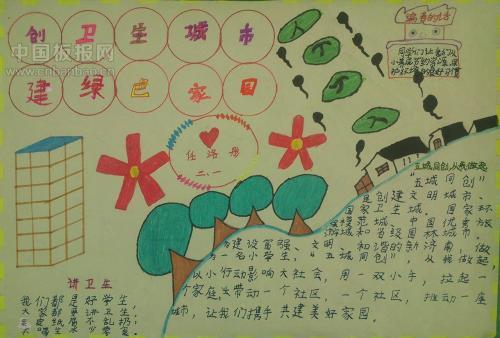 创卫生城市
建绿色家园
中国板报网
www.cnbanbao.cn
编者的话
同学们让我们从
小
任洛丹
二、一
五城同创从我做起
"五城同创"
是创建文明城市、
国家卫生城、国家环
保模范城、中国优秀旅
游城和省级园林城市。
为建设富强、文明、和谐的新济南,做
为一名小学生,"五城同创",从我做起
以小行动影响大社会,用一双小手,拉起一
个家庭,带动一个社区,一个社区,推动一座
城市,让我们携手共建美好家园。
讲卫生
我们都是好学生,
大家都要讲卫生,